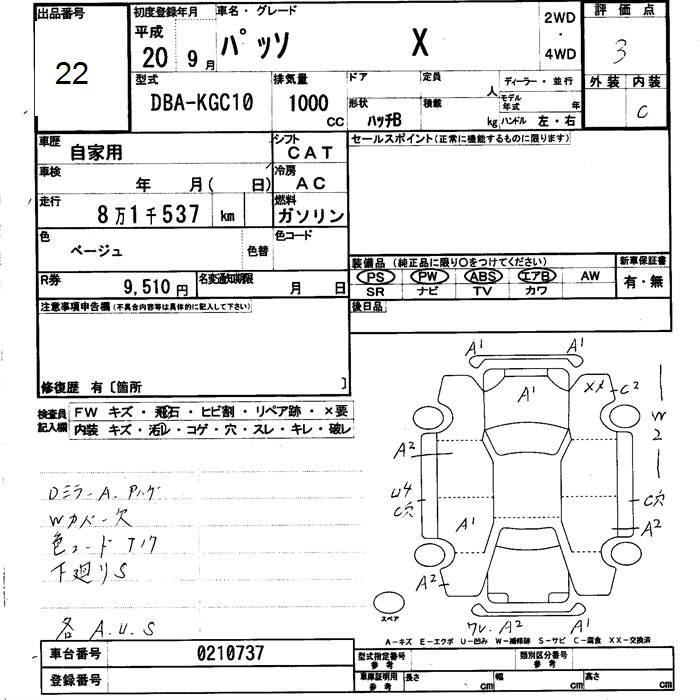 出品番号
22
初度登録年月
平成
20 9月
車名・グレード
パッソ X
2WD
・
4WD
評価点
3
外装 内装
C
型式
DBA-KGC10
排気量
1000
CC
ドア 定員
人
形状
ハッチB
積載
kg
ディーラー・並行
モデル
年式 年
ハンドル 左・右
車歴
自家用
シフト
CAT
車検
年 月( 日)
冷房
AC
走行
8万1千537 km
燃料
ガソリン
色
ベージュ
色替
色コード
R券
9,510円
名変通知期限
月 日
セールスポイント(正常に機能するものに限ります)
装備品 (純正品に限り○をつけてください)
PS PW ABS エアB AW
SR ナビ TV カワ
新車保証書
有・無
後日品
注意事項申告欄(不具合内容等は具体的に記入して下さい)
修復歴 有〔箇所 〕
検査員
記入欄
FW キズ・飛石・ヒビ割・リペア跡・×要
内装 キズ・汚れ・コゲ・穴・スレ・キレ・破レ
DミラーA.
Wカバー欠
色コードT17
下廻りS
各 A.U.S
A1 A1
A1
XX C2
W2
A2
U4
C穴
A1
C穴
A2
A2
ワレ A2 A1
スペア
A-キズ E-エクボ U-凹み W-補修跡 S-サビ C-腐食 XX-交換済
車台番号 0210737
登録番号
型式指定番号
参考
類別区分番号
参考
車庫証明用
参考
長さ cm 幅 cm 高さ cm